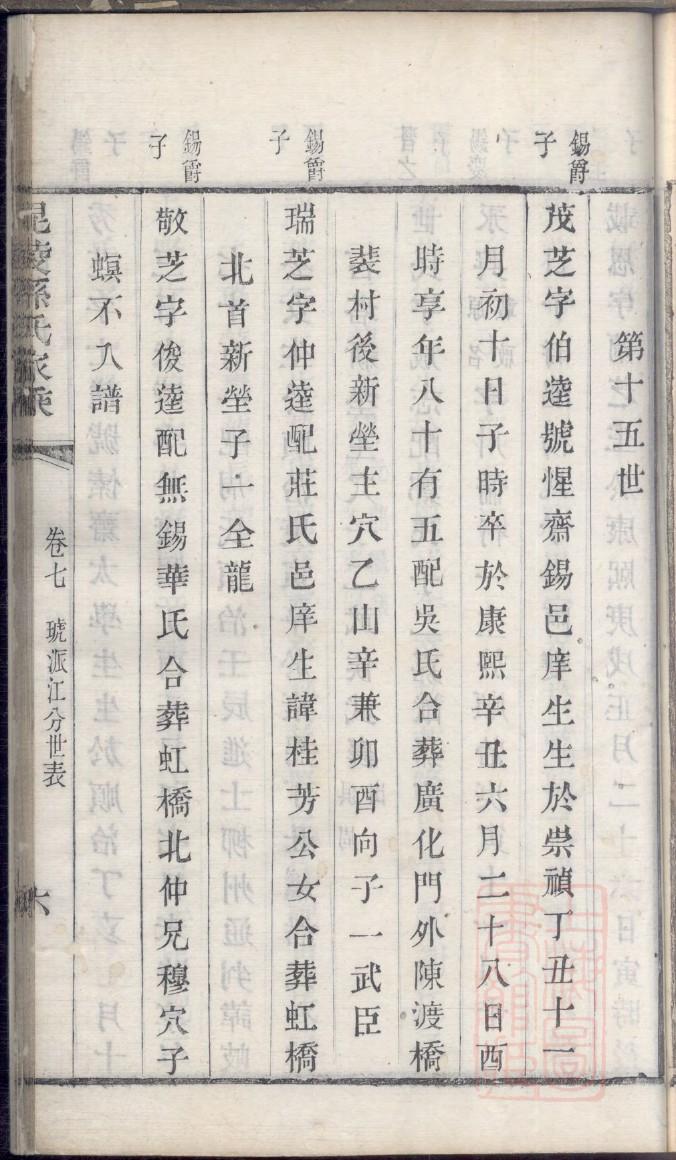 第十五世
錫爵
子
茂芝字伯逵號惺齋錫邑庠生生於崇禎丁丑十一
月初十日子時卒於康熙辛丑六月二十八日酉
時享年八十有五配吳氏合葬廣化門外陳渡橋
裴村後新塋主穴乙山辛兼卯酉向子一武臣
錫爵
子
瑞芝字仲逵配莊氏邑庠生諱桂芳公女合葬虹橋
北首新塋子一全龍
錫爵
子
敬芝字俊逵配無錫華氏合葬虹橋北仲兄穆穴子
螟不入譜
毘陵孫氏家乘
卷七 琥派江分世表
六